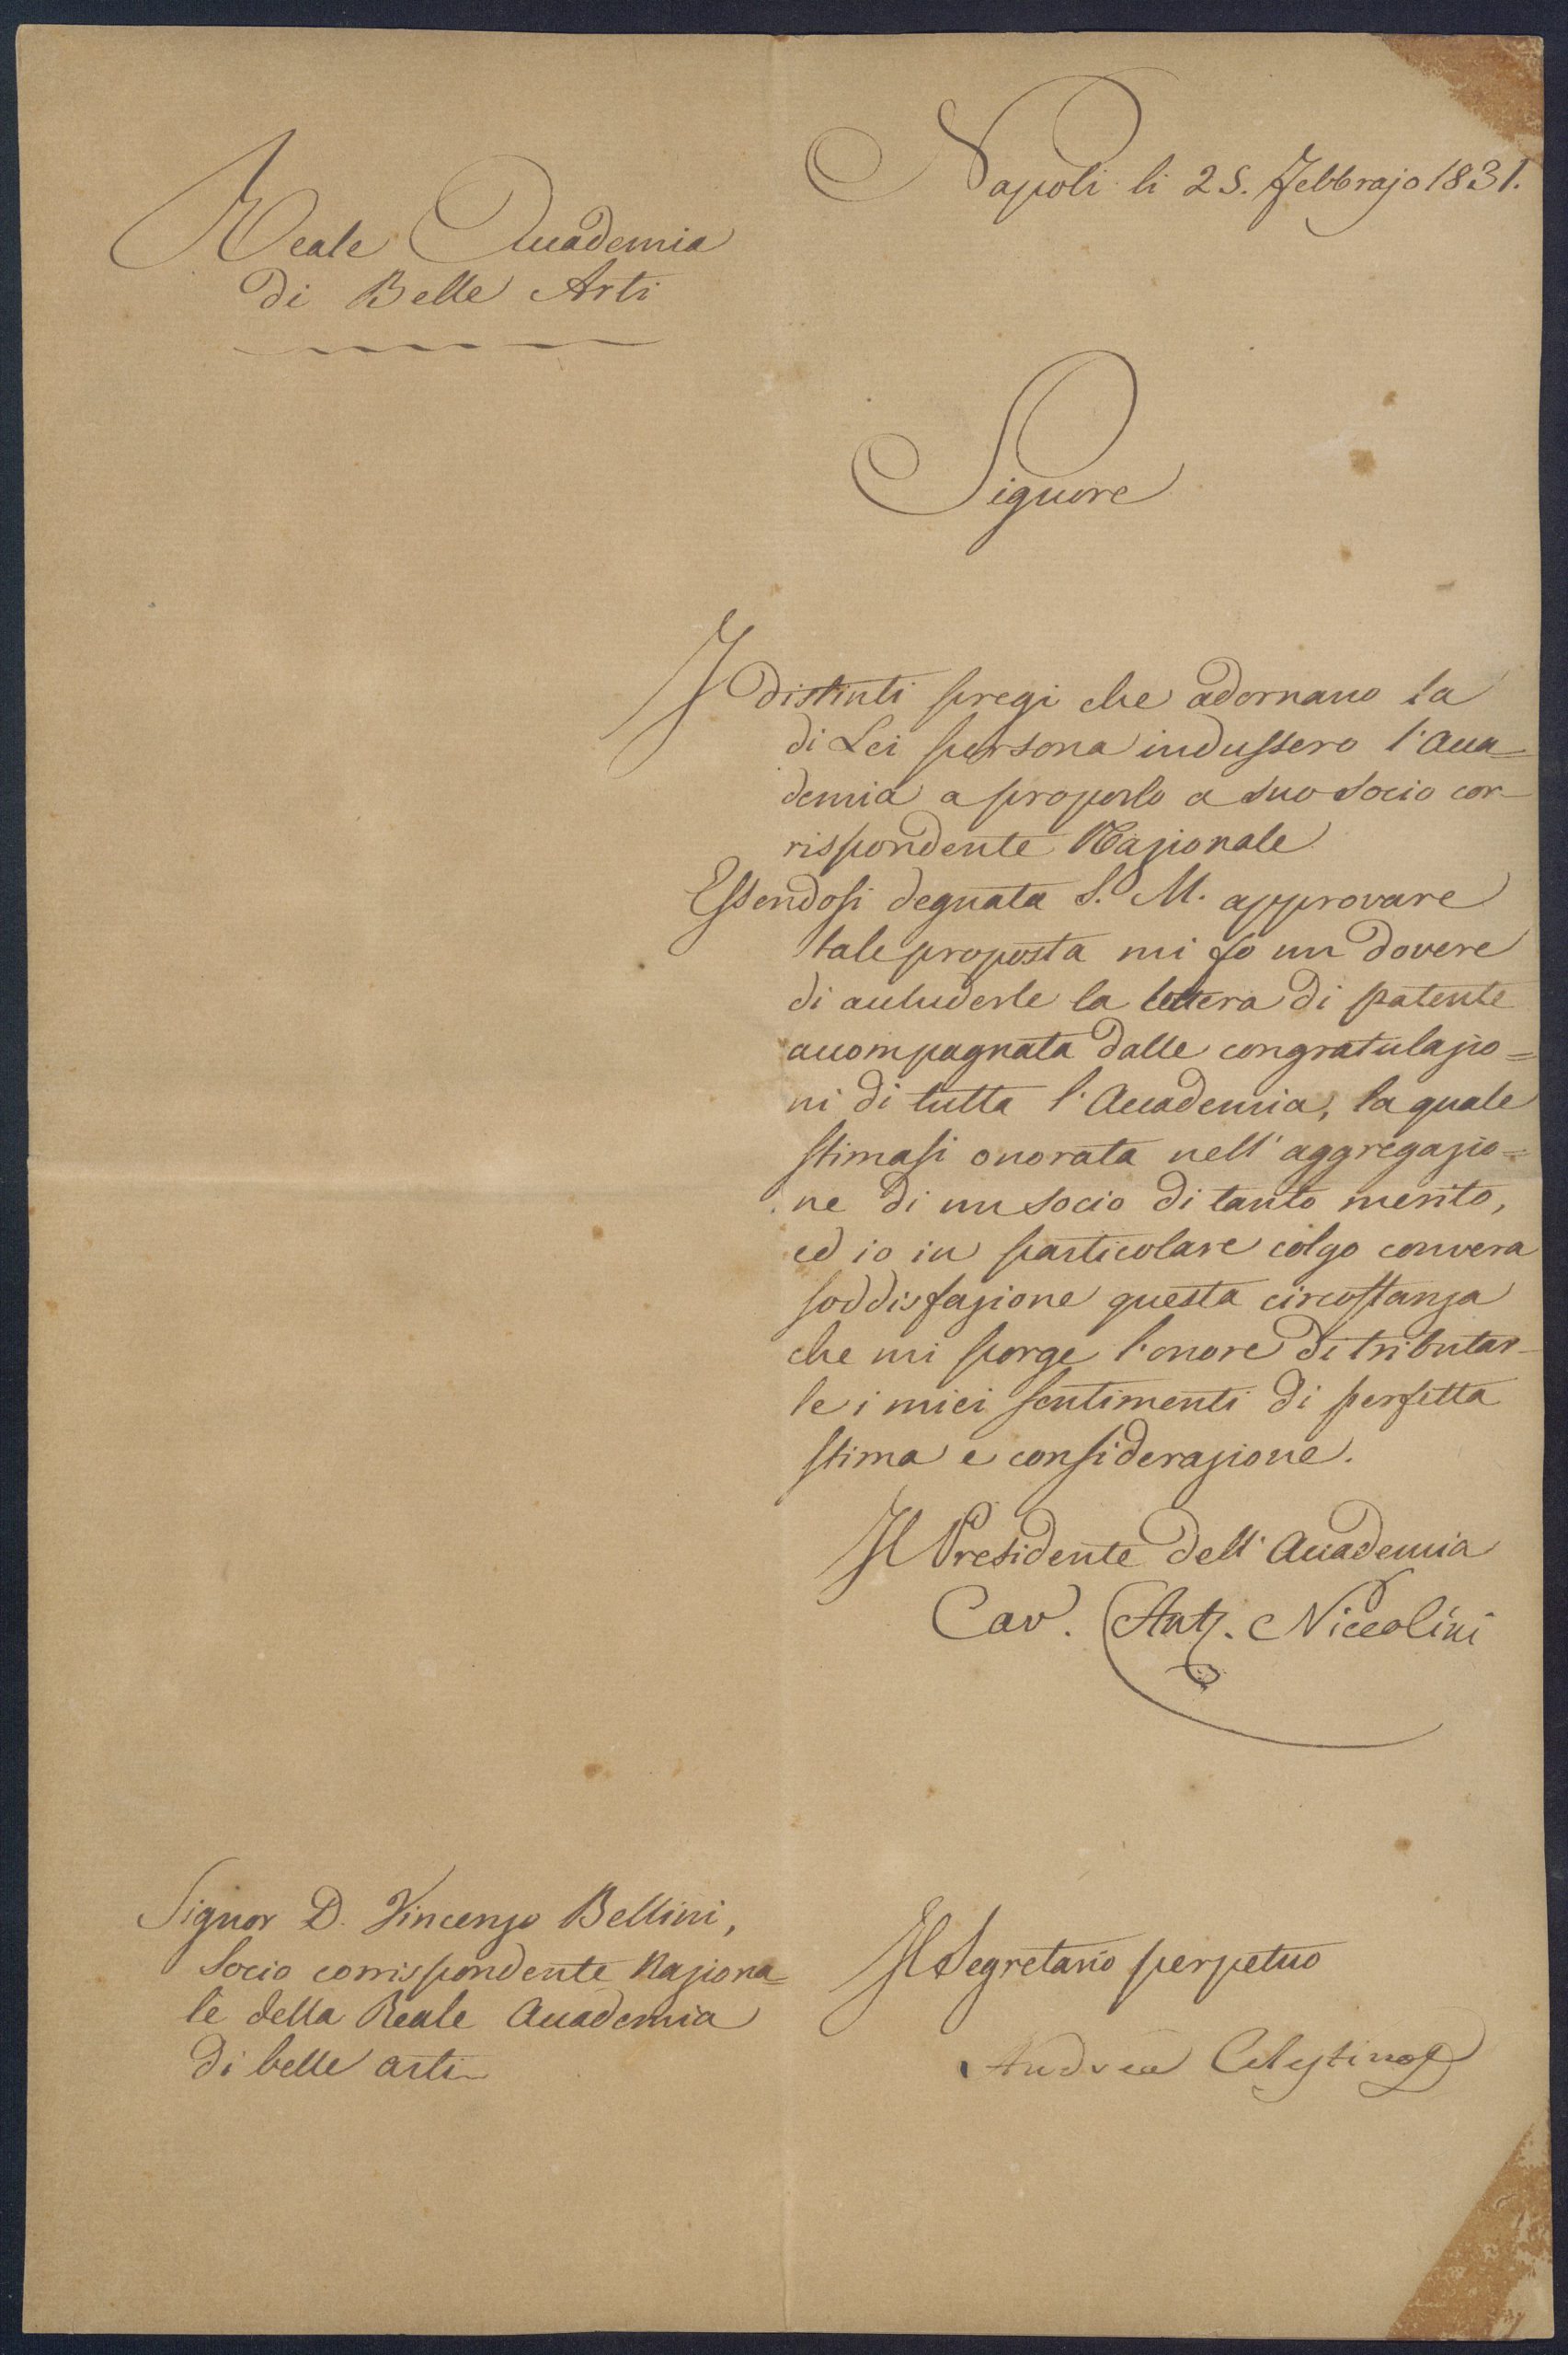 Napoli li 25. Febbrajo 1831.
Reale Accademia
di Belle Arti
Signore
I distinti pregi che adornano la
di Lei persona indussero l'Acca=
demia a proporlo a suo socio cor-
rispondente Nazionale
Essendosi degnata S. M. approvare
tale proposta mi fo un dovere
di accluderle la lettera di patente
accompagnata dalle congratulazio=
ni di tutta l'Accademia, la quale
stimasi onorata nell'aggregazio=
ne di un socio di tanto merito,
ed io in particolare colgo con vera
soddisfazione questa circostanza
che mi porge l'onore di tributar-
le i miei sentimenti di perfetta
stima e considerazione.
Il Presidente dell'Accademia
Cav. Ant. Niccolini
Signor D. Vincenzo Bellini,
Socio corrispondente Naziona=
le della Reale Accademia
di belle arti
Il Segretario perpetuo
Andrea Celestino